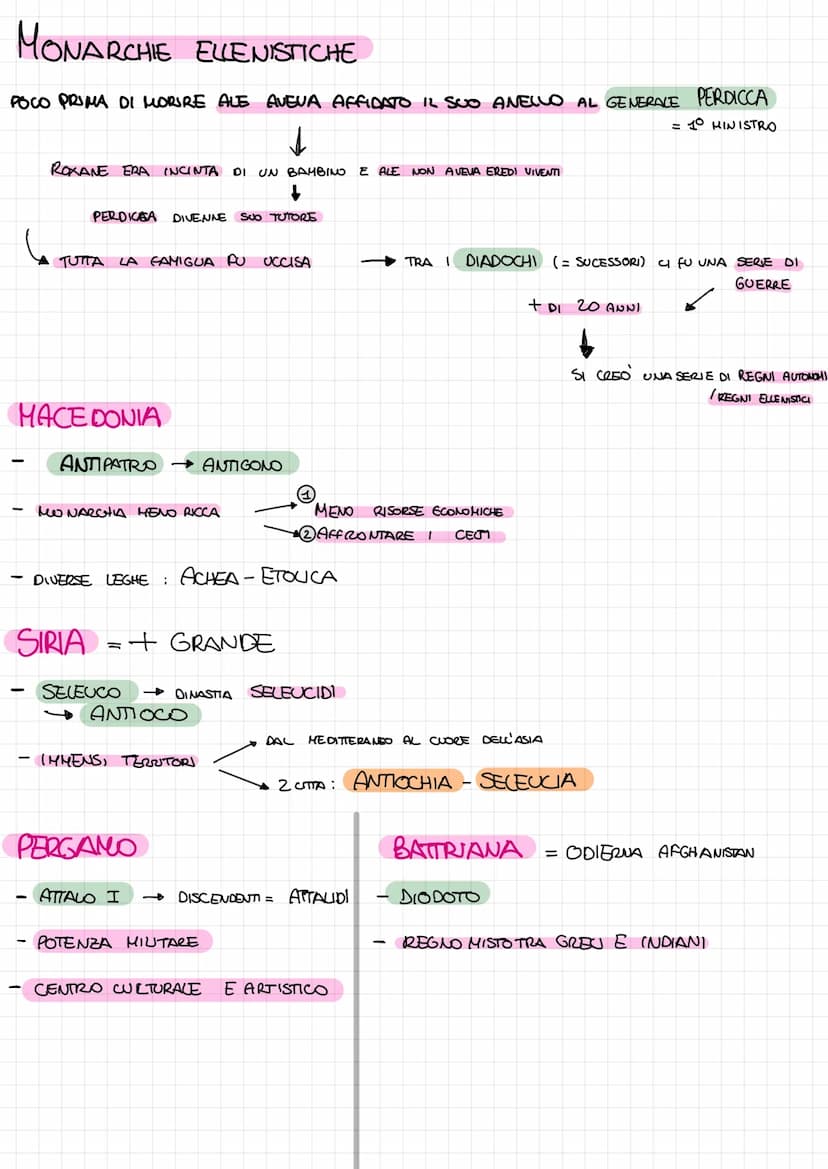 MONARCHIE ELLENISTICHE
POCO PRIMA DI MORIRE ALE AVEVA AFFIDATO IL SUO ANELLO AL GENERALE PERDICCA
= 1° MINISTRO
ROXANE ERA INCINTA DI UN BAMBINO E ALE NON AVEVA EREDI VIVENTI
PERDICCA DIVENNE SUO TUTORE
TUTTA LA FAMIGLIA FU UCCISA → TRA I DIADOCHI (= SUCESSORI) CI FU UNA SERIE DI
GUERRE
+ DI 20 ANNI
SI CREÒ UNA SERIE DI REGNI AUTONOMI
/ REGNI ELLENISTICI
MACEDONIA
- ANTIPATRO → ANTIGONO
- MONARCHIA MENO RICCA
① MENO RISORSE ECONOMICHE
② AFFRONTARE I CELTI
- DIVERSE LEGHE : ACHEA - ETOLICA
SIRIA = + GRANDE
- SELEUCO → DINASTIA SELEUCIDI
→ ANTIOCO
- IMMENSI TERRITORI
DAL MEDITTERANEO AL CUORE DELL'ASIA
2 CITTA : ANTIOCHIA - SELEUCIA
PERGAMO
- ATTALO I → DISCENDENTI = ATTALIDI
- POTENZA MILITARE
- CENTRO CULTURALE E ARTISTICO
BATTRIANA = ODIERNA AFGHANISTAN
- DIODOTO
- REGNO MISTO TRA GRECI E INDIANI